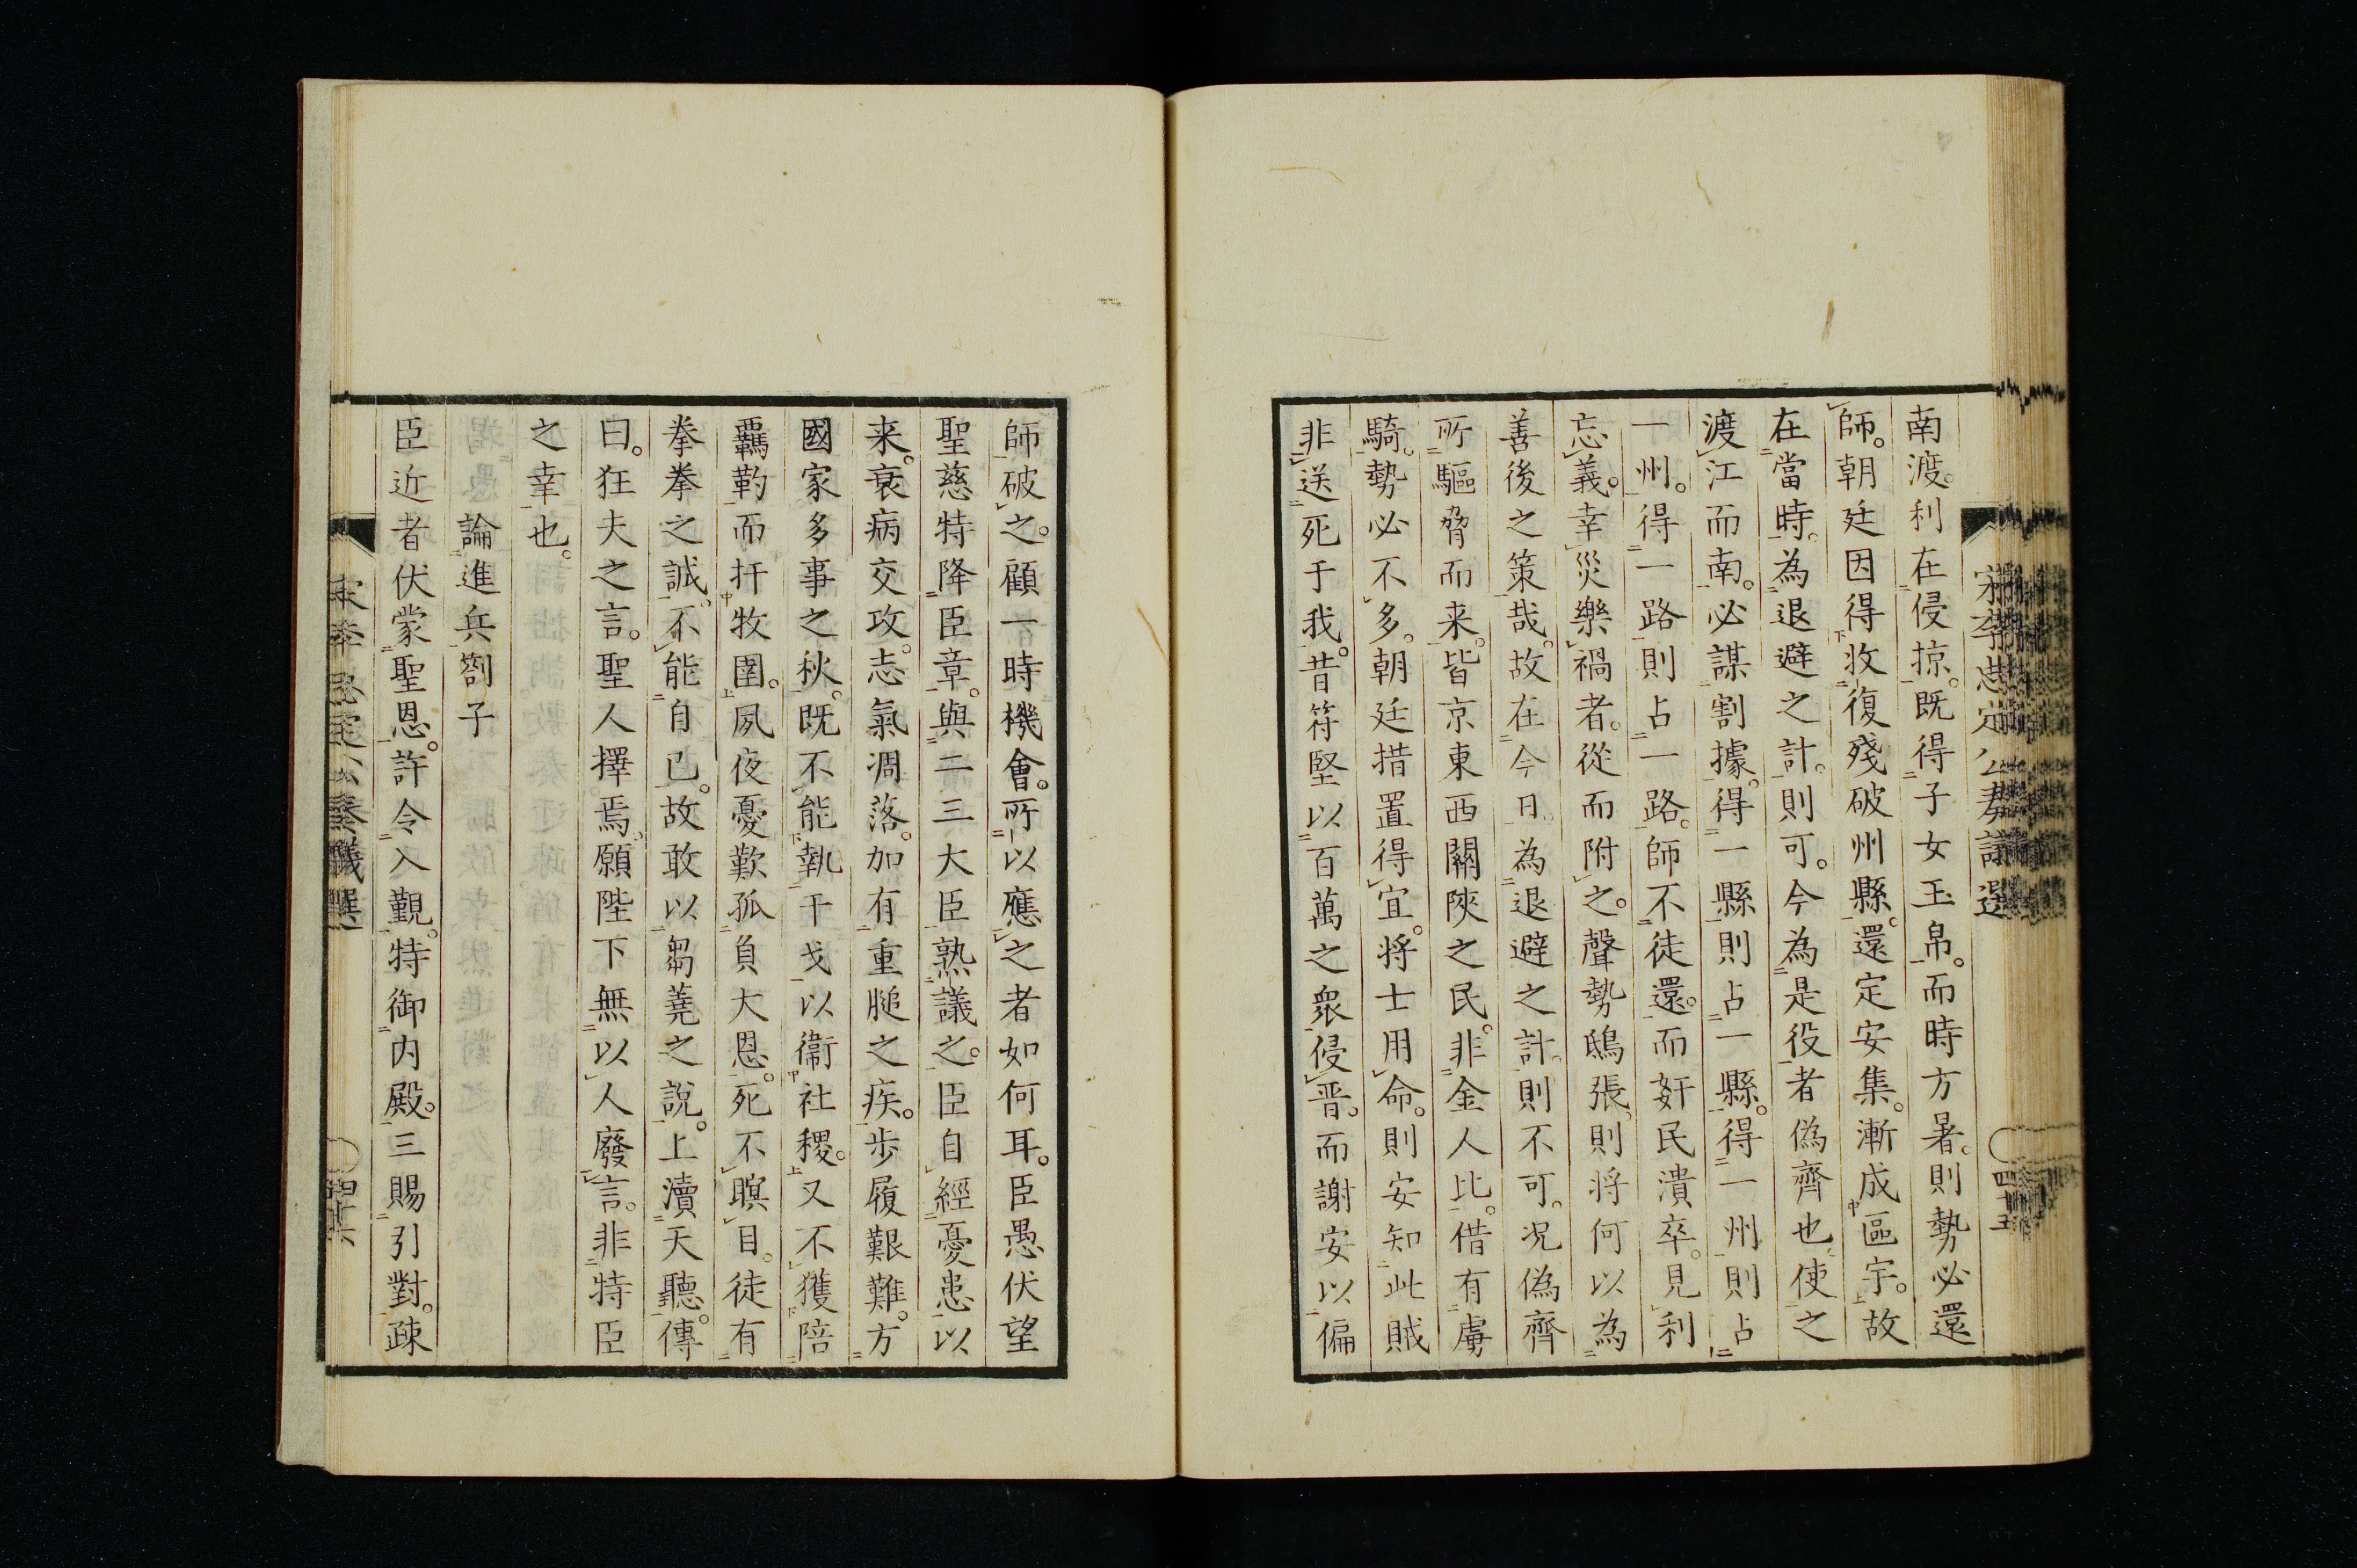 南渡。利在侵掠。既得子女玉帛。而時方暑。則勢必還
師。朝廷因得收復殘破州縣。還定安集。漸成區宇。故
在當時。為退避之計。則可。今為是役者偽齊也。使之
渡江而南。必謀割據。得一縣則占一縣。得一州則占
一州。得一路則占一路。師不徒還。而奸民潰卒。見利
忘義。幸災樂禍者。從而附之。聲勢鴟張。則將何以為
善後之策哉。故在今日。為退避之計。則不可。况偽齊
所驅脅而来。皆京東西關陝之民。非金人比。借有虜
騎。勢必不多。朝廷措置得宜。将士用命。則安知此賊
非送死于我。昔符堅以百萬之眾侵晋。而謝安以偏
師破之。顧一時機會。所以應之者如何耳。臣愚伏望
聖慈特降臣章。與二三大臣熟議之。臣自經憂患以
来。衰病交攻。志氣凋落。加有重膇之疾。歩履艱難。方
國家多事之秋。既不能執干戈以衞社稷。又不獲陪
羈靮而扞牧圉。夙夜憂歎孤負大恩。死不瞑目。徒有
拳拳之誠。不能自已。故敢以芻蕘之說。上瀆天聽。傳
曰。狂夫之言。聖人擇焉。願陛下無以人廢言。非特臣
之幸也。
論進兵劄子
臣近者伏蒙聖恩。許令入覲。特御内殿。三賜引對。疎